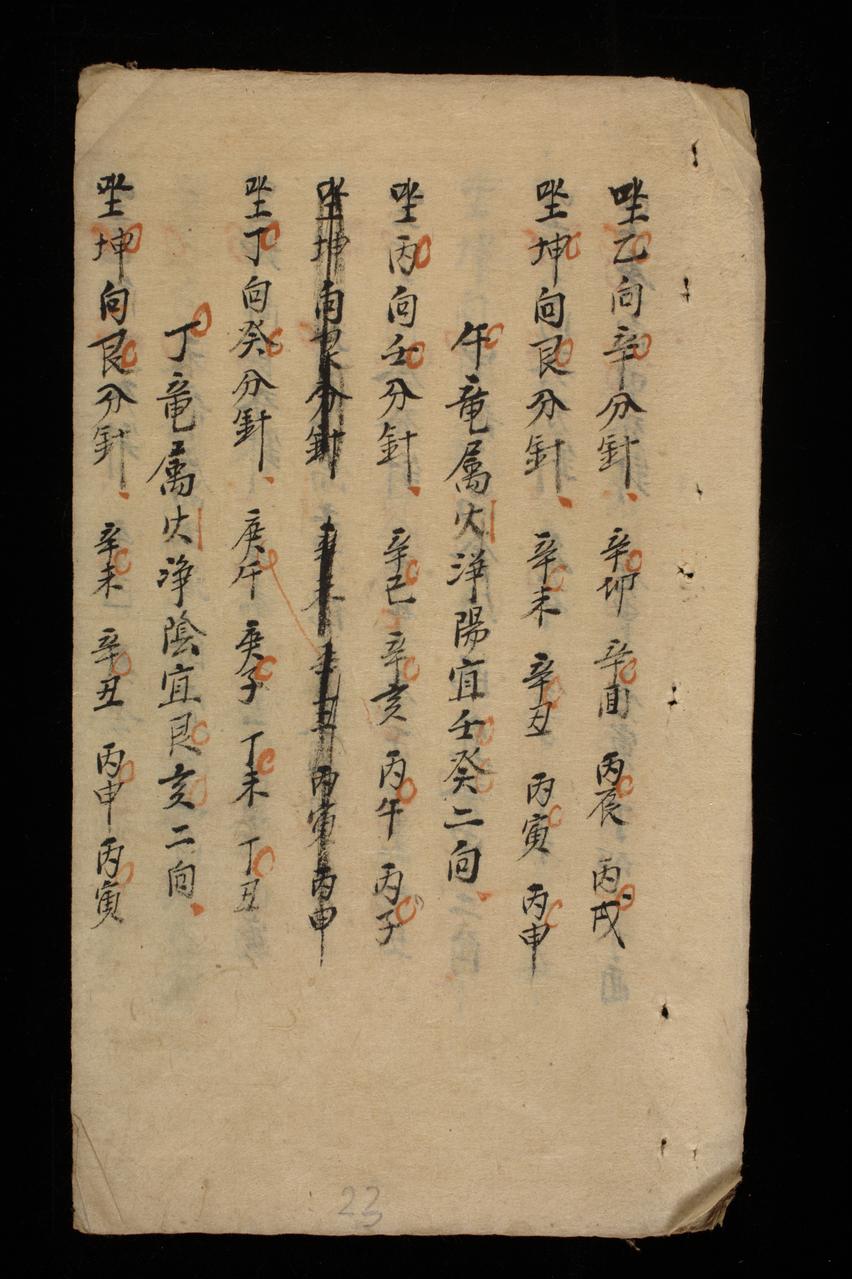 坐乙向辛分針 辛卯 辛酉 丙辰 丙戌
坐坤向艮分針 辛未 辛丑 丙寅 丙申
午竜属火淨陽宜壬癸二向
坐丙向壬分針 辛巳 辛亥 丙午 丙子
坐坤向艮分針 辛未 辛丑 丙寅 丙申
坐丁向癸分針 庚午 庚子 丁未 丁丑
丁竜属火淨陰宜艮亥二向
坐坤向艮分針 辛未 辛丑 丙申 丙寅
23